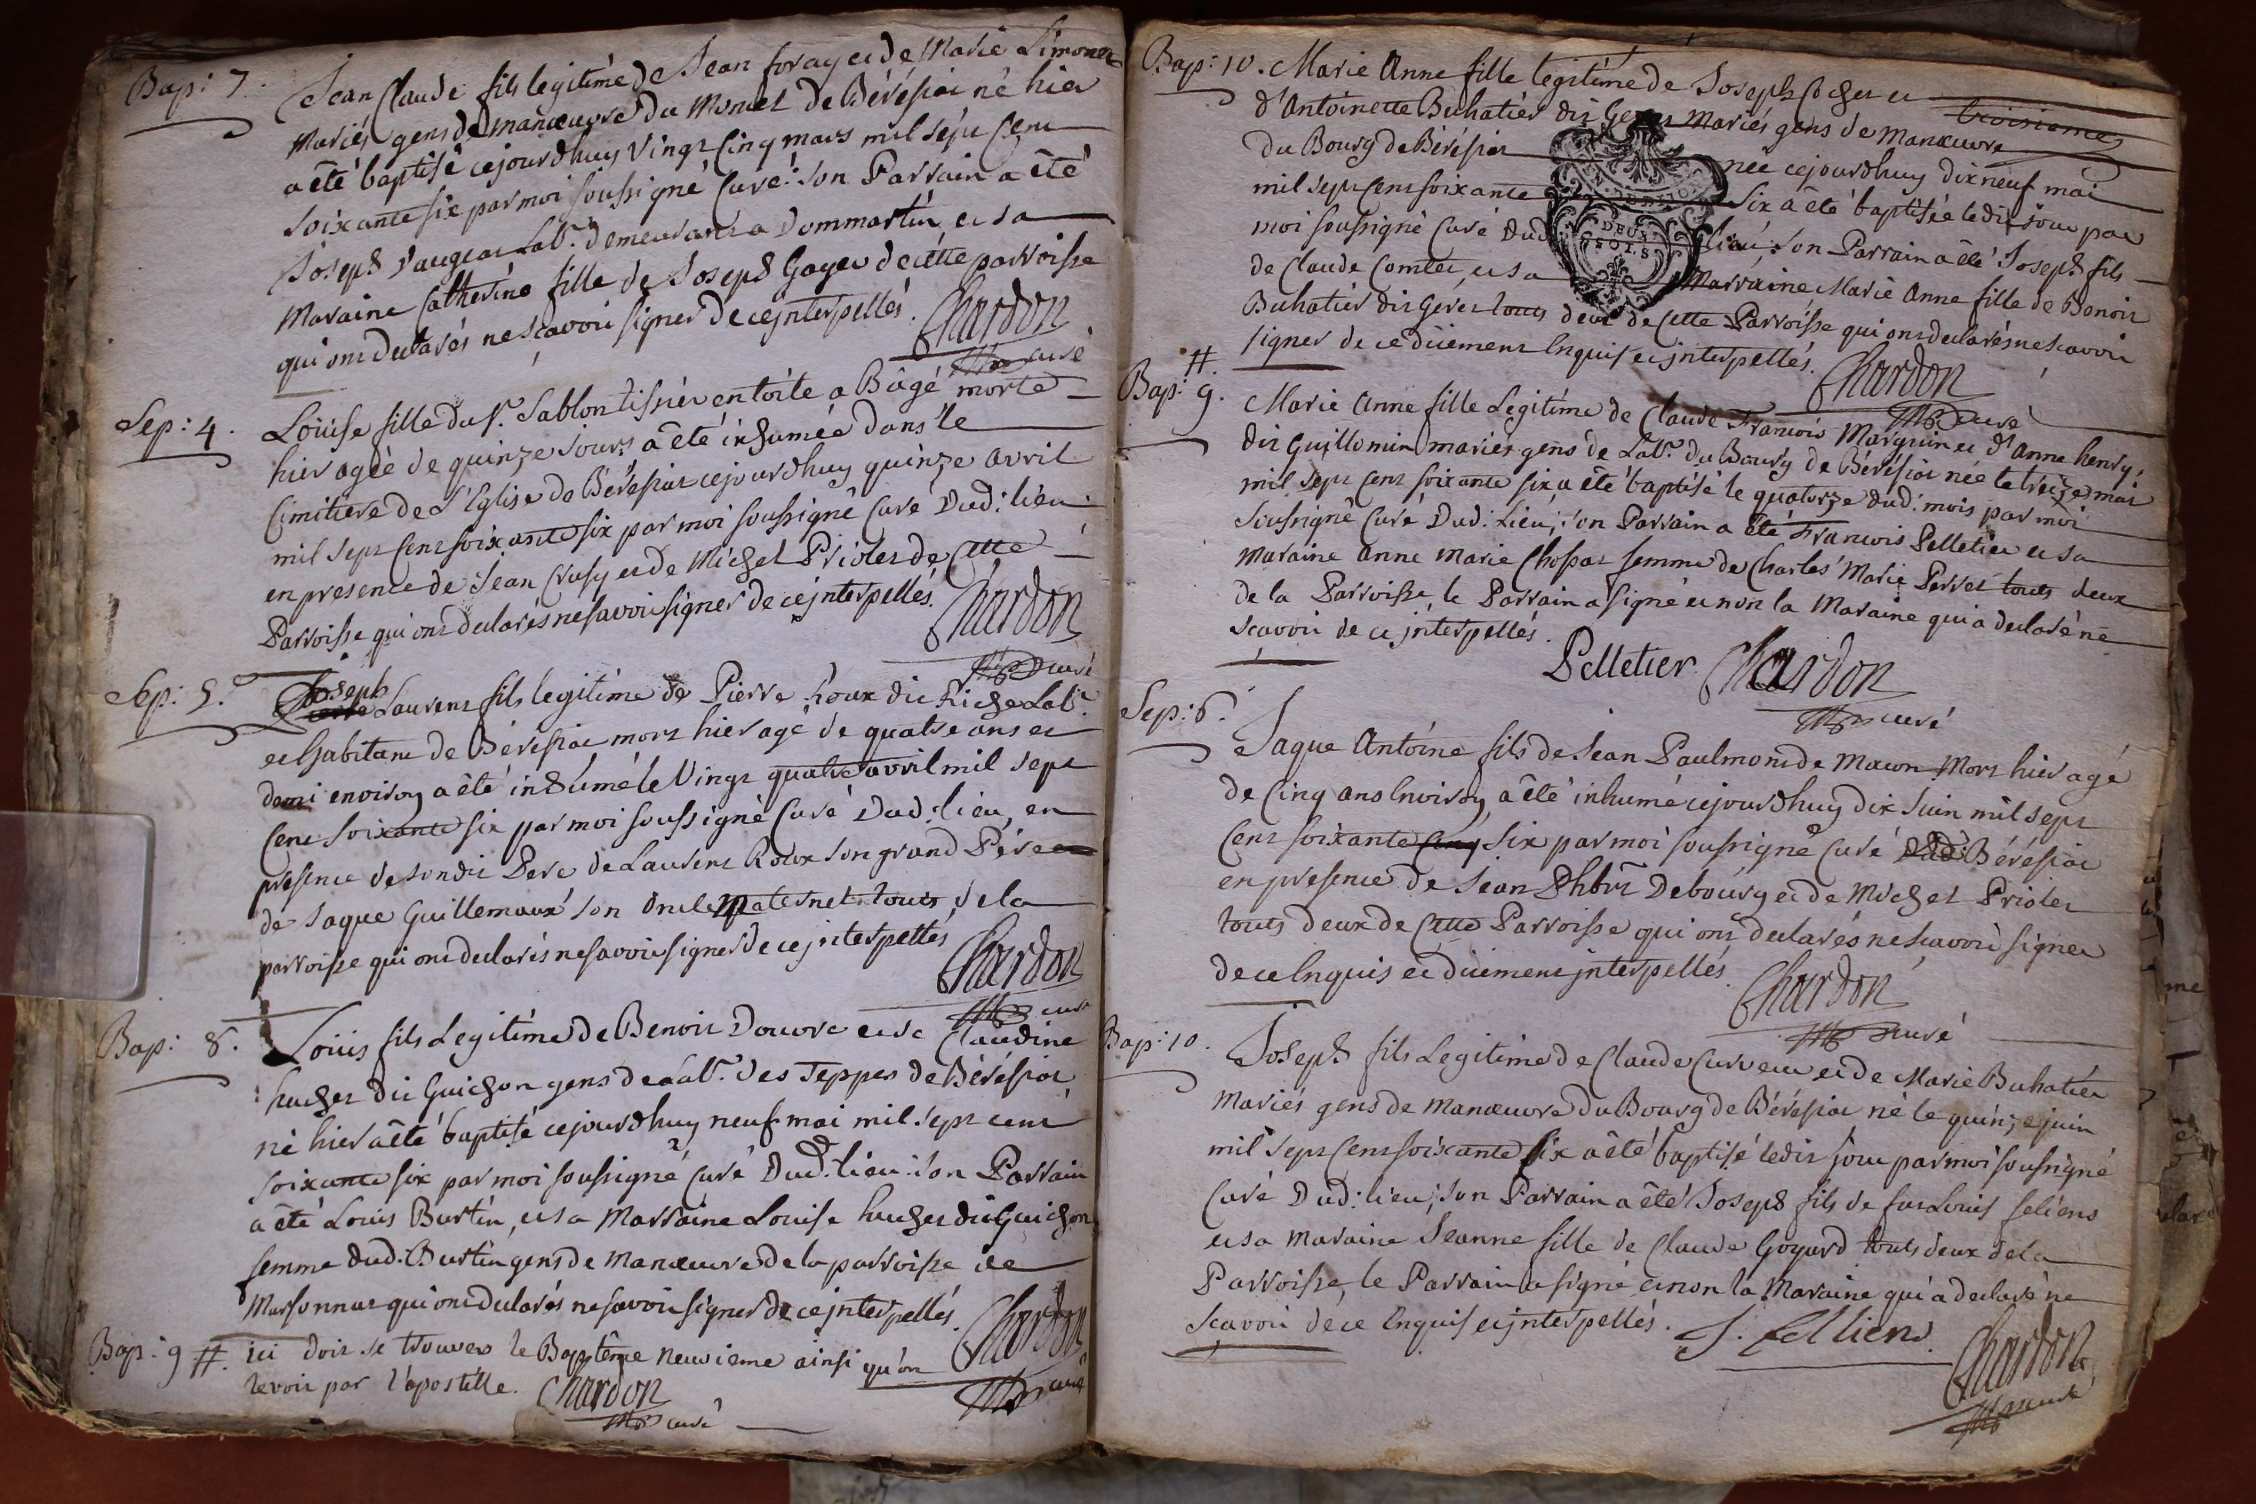 Bap: 7. Jean Claude fils legitime de Jean foray et de Marie Limonet
Mariés gens de manœuvre du Moulet de Bérésiat né hier
a êté baptisé cejourdhuy Vingt Cinq mars mil sept Cent
soixante six par moi soussigné Curé: son Parrain a êté
Joseph Vaugeat Labr. demeurant a Dommartin, et sa
Maraine Catherine fille de Joseph Goyer de cette parroisse
qui ont declarés ne scavoir signer de ce jnterpellés. Chardon
curé
Sep: 4. Louise fille du Sr. Sablon tissier en toile a Bâgé morte
hier agée de quinze jours a êté inhumée dans le
Cimitiere de L'Eglise de Bérésiat cejourdhuy quinze avril
mil sept Cent soixante six par moi soussigné Curé Dud: lieu
en presence de Jean Crusy et de Michel Priolet de Cette
Parroisse qui ont declarés ne savoir signer de ce jnterpellés. Chardon
curé
Sep: 5. Joseph Laurent fils legitime de Pierre Roux dit Riche Labr.
et habitant de Bérésiat mort hier agé de quatre ans et
demi environ a êté inhumé le Vingt quatre avril mil sept
Cent soixante six par moi soussigné Curé Dud: lieu, en
presence de sondit Pere de Laurent Roux son grand Pére
de Jaque Guillemaux son oncle maternel touts de la
parroisse qui ont declarés ne savoir signer de ce jnterpellés Chardon
curé
Bap: 8. Louis fils Legitime de Benoit Douvre et de Claudine
huchet dit Guichon gens de Labr. des Teppes de Bérésiat
né hier a êté baptisé cejourdhuy neuf mai mil sept cent
soixante six par moi soussigné Curé Dud: lieu: son Parrain
a êté Louis Burtin, et sa Marraine Louise huchet dit Guichon
femme dud: Burtin gens de Manœuvre de la parroisse de
Marsonnas qui ont declarés ne savoir signer de ce jnterpellés. Chardon
curé
Bap: 9 #. ici doit se trouver le Baptême neuvieme ainsi qu'on
le voit par l'apostille. Chardon
curé
Bap: 10. Marie Anne fille legitime de Joseph Cochet et
troisieme
d'Antoinette Buhatier dit Geret Mariés gens de Manœuvre
du Bourg de Bérésiat née cejourdhuy dix neuf mai
mil sept Cent soixante six a êté baptisée ledit jour par
moi soussigné Curé Dud lieu; son Parrain a êté Joseph fils
DEUX
SOLS
de Claude Comtet, et sa Marraine Marie Anne fille de Benoit
Buhatier dit Geret touts deux de Cette Parroisse qui ont declarés ne scavoir
signer de ce dûement Enquis et jnterpellés. Chardon
curé
#.
Bap: 9. Marie Anne fille Legitime de Claude François Marguin et d'Anne henry,
dit Guillomin mariés gens de Labr. du Bourg de Bérésiat née le treize mai
mil sept Cent soixante six a êté baptisé le quatorze dud: mois par moi
soussigné Curé Dud: Lieu; son Parrain a êté François Pelletier et sa
Maraine Anne Marie Chossat femme de Charles Marie Perret touts deux
de la Parroisse, le Parrain a signé et non la Maraine qui a declaré ne
scavoir de ce jnterpellés.
Pelletier Chardon
curé
Sep: 6. Jaque Antoine fils de Jean Paulmond de Macon Mort hier agé
de Cinq ans Environ, a êté inhumé cejourdhuy dix Juin mil sept
Cent soixante Cinq six par moi soussigné Curé Dud: Bérésiat
en presence de Jean Phbrt Debourg et de Michel Priolet
touts deux de Cette Parroisse qui ont declarés ne scavoir signer
de ce Enquis et dûement jnterpellés Chardon
curé
Bap: 10. Joseph fils Legitime de Claude Curveur et de Marie Buhatier
Mariés gens de Manœuvre du Bourg de Bérésiat né le quinze juin
mil sept Cent soixante six a êté baptisé ledit jour par moi soussigné
Curé Dud: lieu; son Parrain a êté Joseph fils de feu Louis feliens
et sa Maraine Jeanne fille de Claude Goyard touts deux de la
Parroisse, le Parrain a signé et non la Maraine qui a declaré ne
scavoir de ce Enquis et jnterpellés. J. felliens Chardon
curé